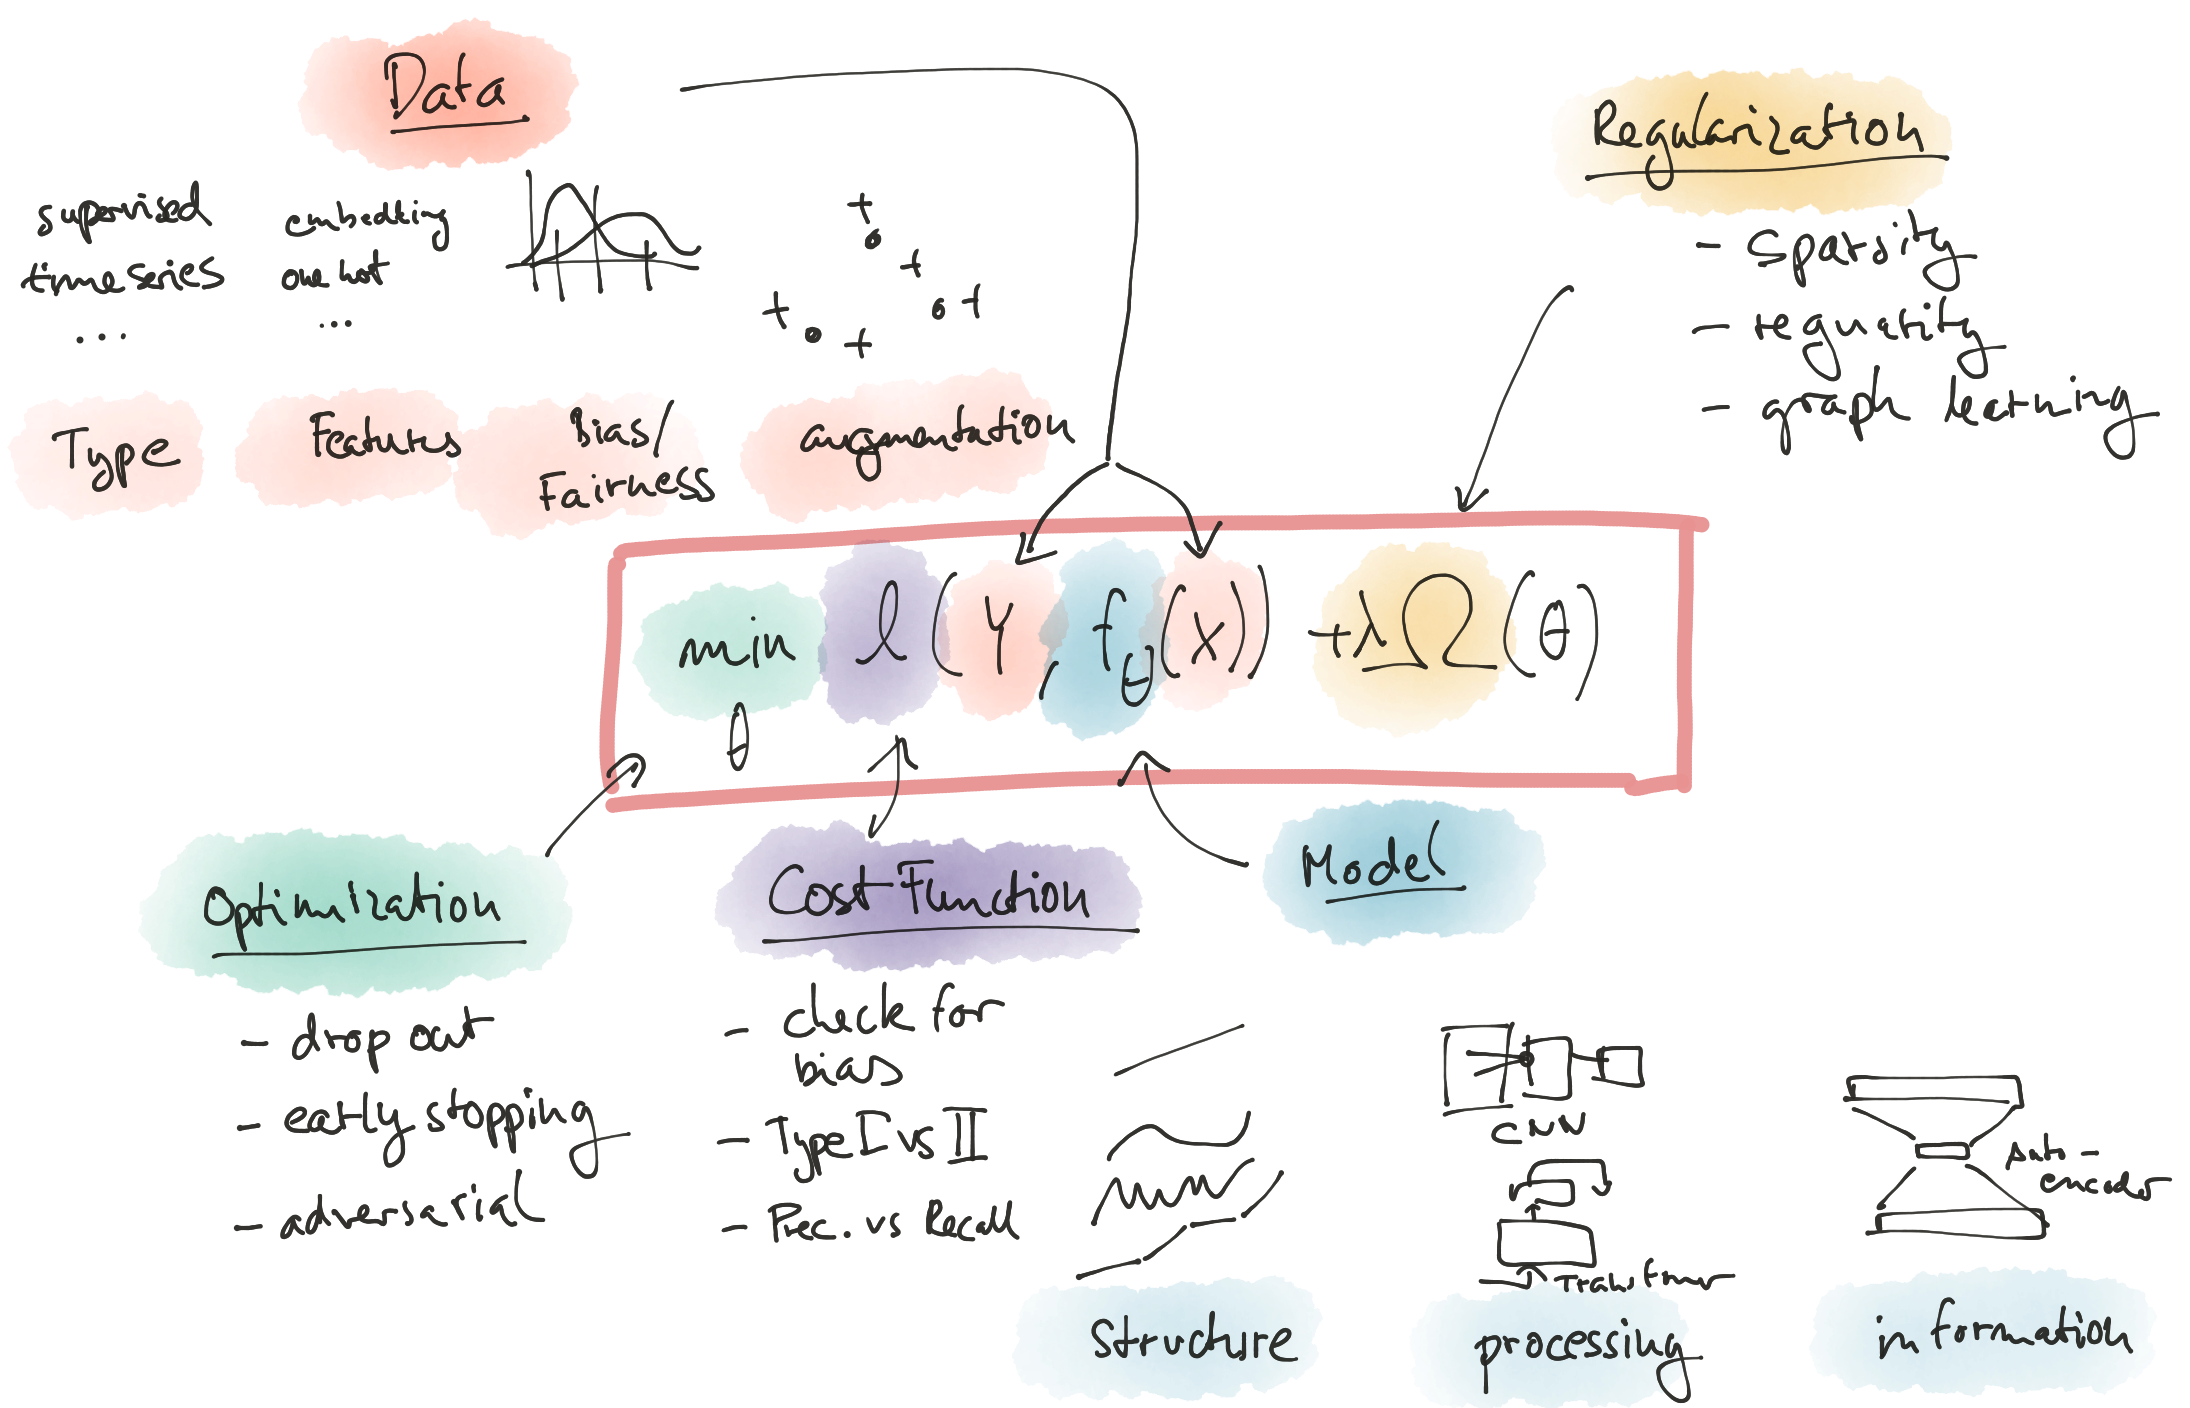 Data
supervised
timeseries
...
embedding
one hot
...
Type
Features
Bias/
Fairness
augmentation
Regularization
- sparsity
- regularity
- graph learning
min l (Y, fθ(X)) + λΩ(θ)
θ
Optimization
- drop out
- early stopping
- adversarial
Cost Function
- check for
bias
- Type I vs II
- Prec. vs Recall
Model
Structure
CNN
Transformer
processing
Auto-
encoder
information